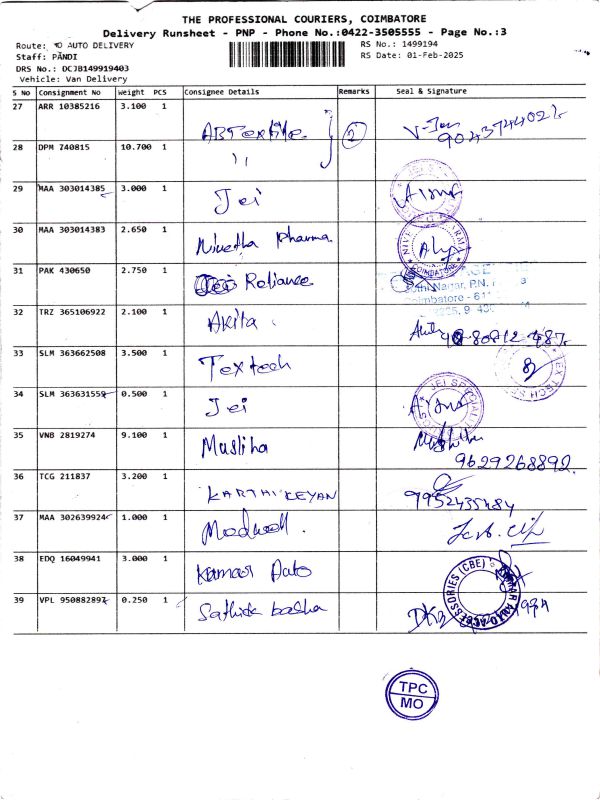 THE PROFESSIONAL COURIERS, COIMBATORE
Delivery Runsheet - PNP - Phone No.:0422-3505555 - Page No.:3
Route: AUTO DELIVERY
RS No.: 1499194
Staff: PANDI
RS Date: 01-Feb-2025
DRS No.: DCJB149919403
Vehicle: Van Delivery
S No Consignment No Weight PCS Consignee Details Remarks Seal & Signature
27 ARR 10385216 3.100 1 ABTextile 2 9043744022
28 DPM 740815 10.700 1 "
29 MAA 303014385 3.000 1 Jei
30 MAA 303014383 2.650 1 Nivetha Pharma COIMBATORE
31 PAK 430650 2.750 1 Reliance
32 TRZ 365106922 2.100 1 Akila
33 SLM 363662508 3.500 1 Textech TEX TECH
34 SLM 363631559 0.500 1 Jei JEI
35 VNB 2819274 9.100 1 Musliha 9629268892
36 TCG 211837 3.200 1 KARTHIKEYAN 9952435484
37 MAA 302639924 1.000 1
38 EDQ 16049941 3.000 1 Kumar Auto KUMAR AUTO ACCESSORIES (CBE)
39 VPL 950882897 0.250 1 Sathick basha
TPC
MO